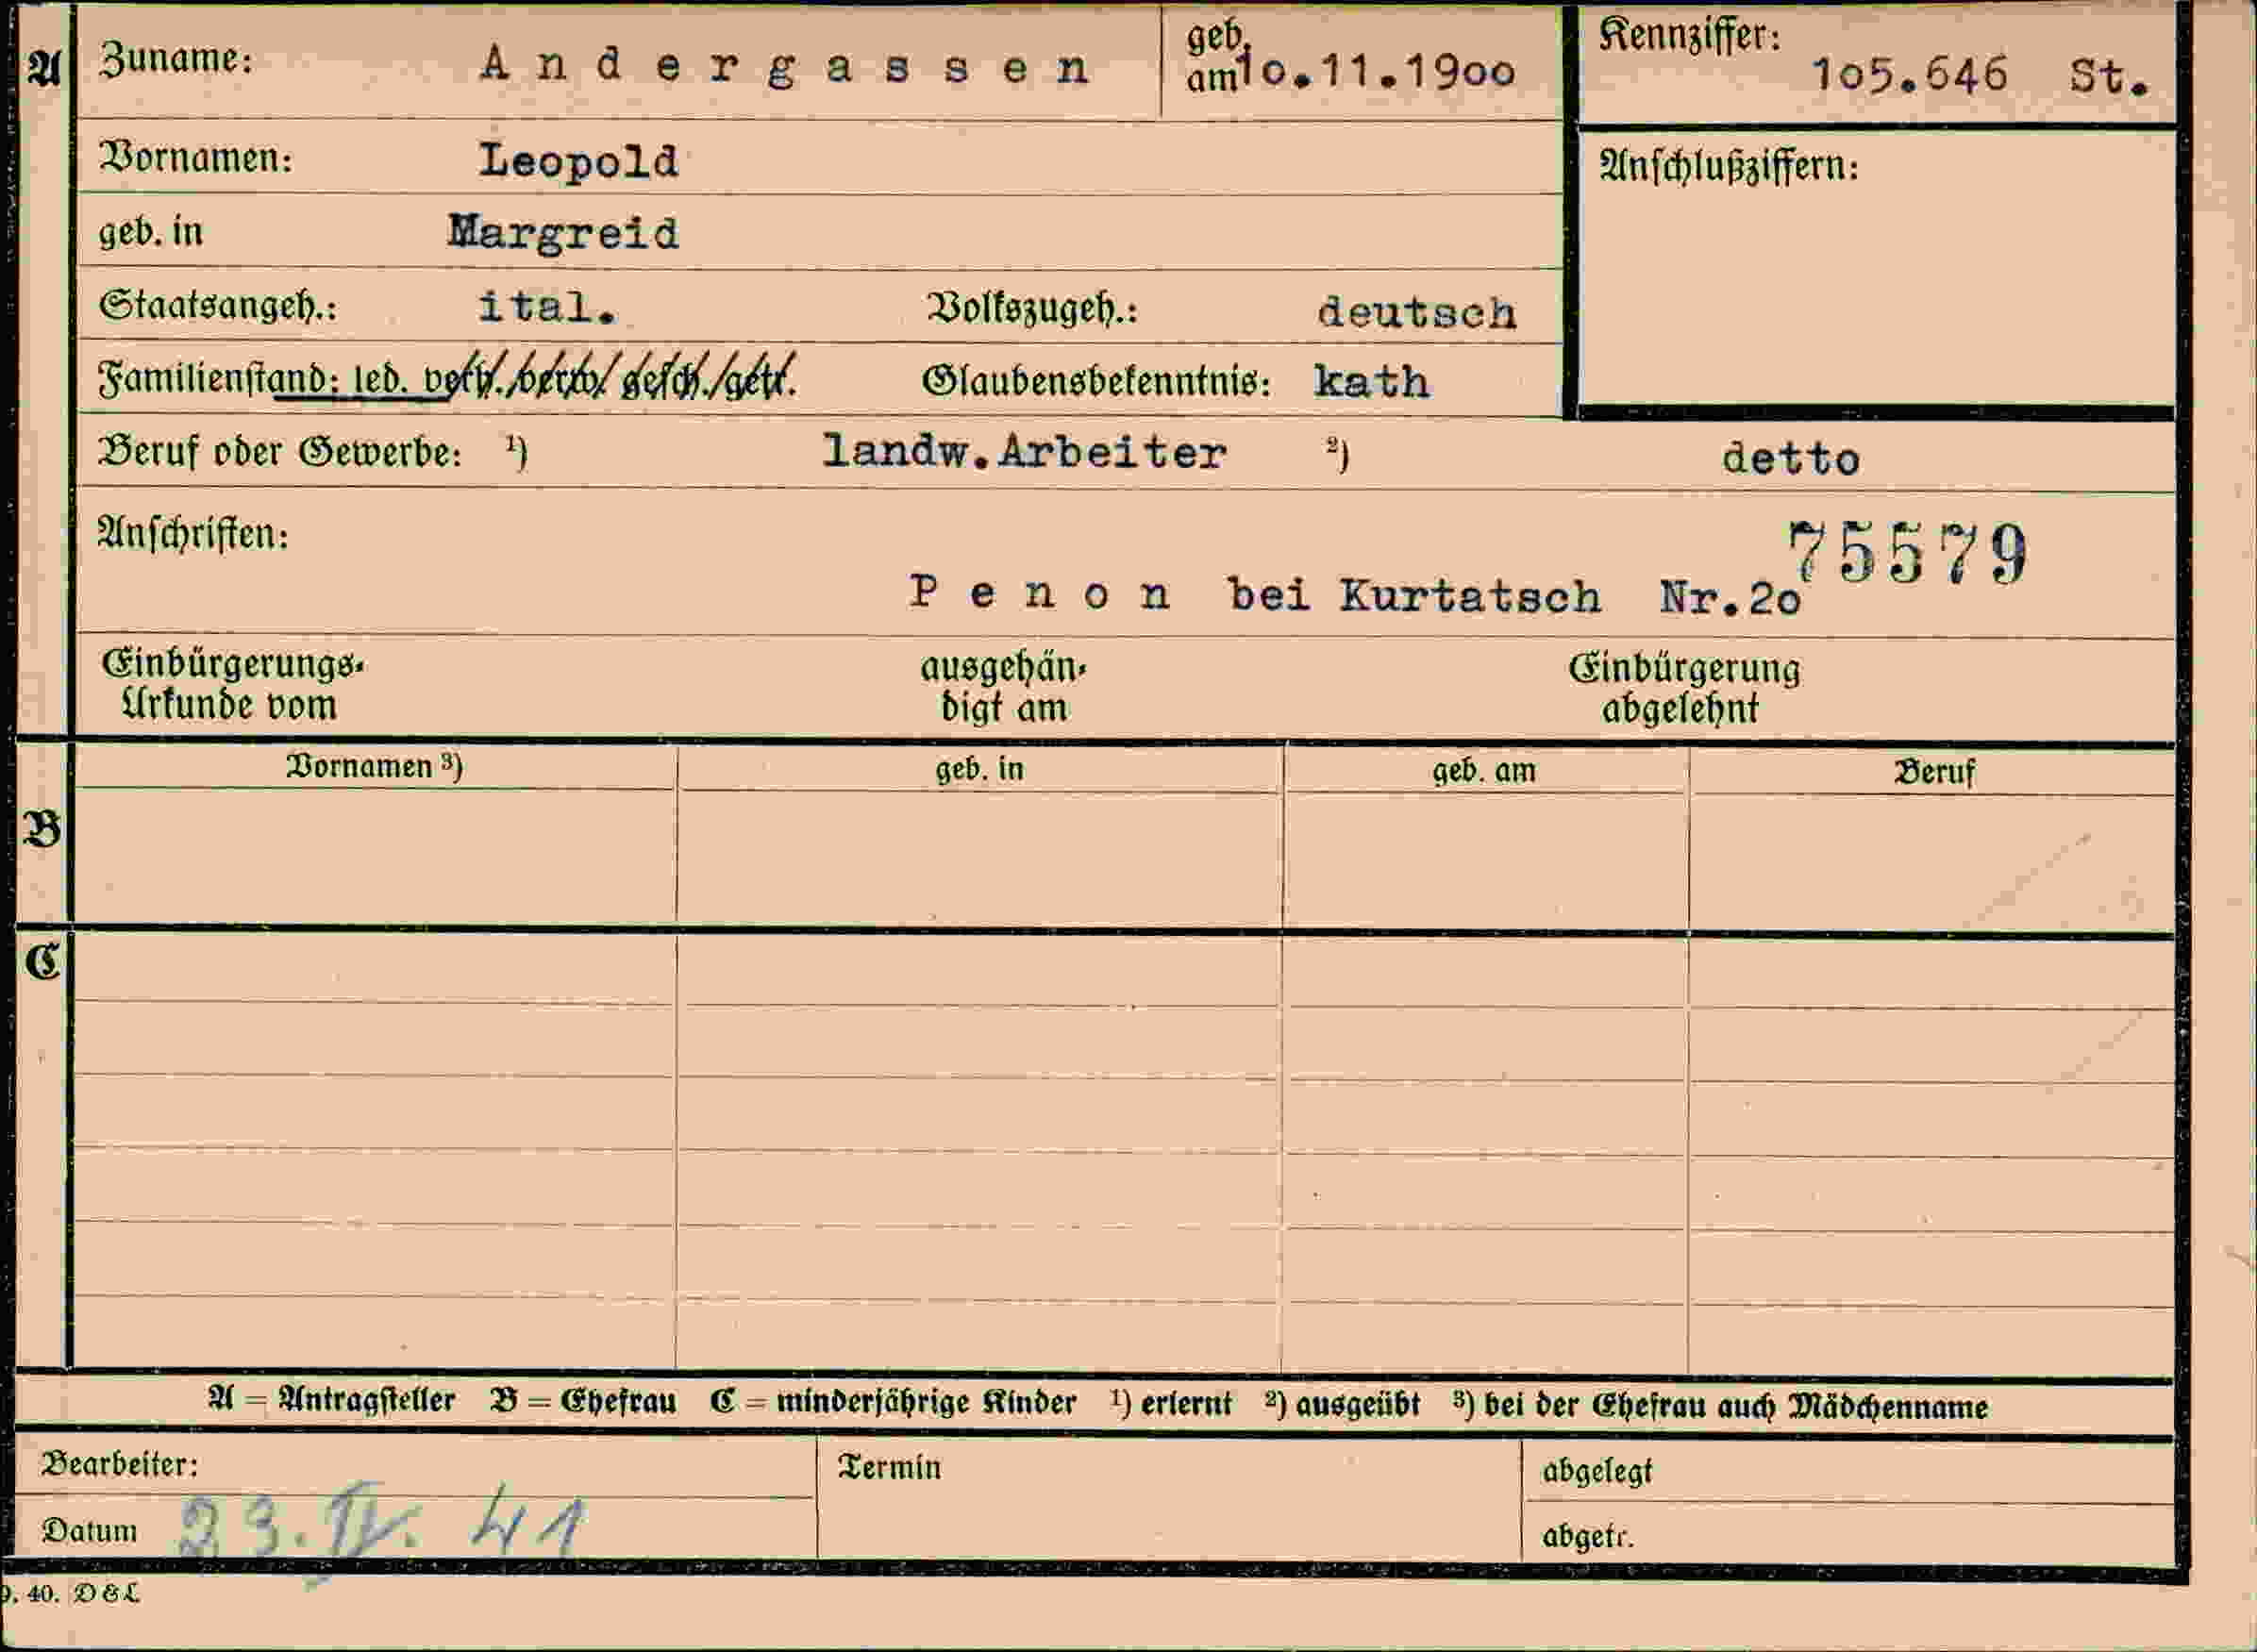 A Zuname: Andergassen geb. am 10.11.1900 Kennziffer: 105.646 St.
Vornamen: Leopold Anschlußziffern:
geb. in Margreid
Staatsangeh.: ital. Volkszugeh.: deutsch
Familienstand: led. verh./verw./gesch./getr. Glaubensbekenntnis: kath
Beruf oder Gewerbe: ¹) landw.Arbeiter ²) detto
Anschriften: 75579
Penon bei Kurtatsch Nr.20
Einbürgerungs- ausgehän- Einbürgerung
Urkunde vom digt am abgelehnt
Vornamen ³) geb. in geb. am Beruf
B
C
A = Antragsteller B = Ehefrau C = minderjährige Kinder ¹) erlernt ²) ausgeübt ³) bei der Ehefrau auch Mädchenname
Bearbeiter: Termin abgelegt
Datum 23. IV. 41 abgetr.
9. 40. D & L